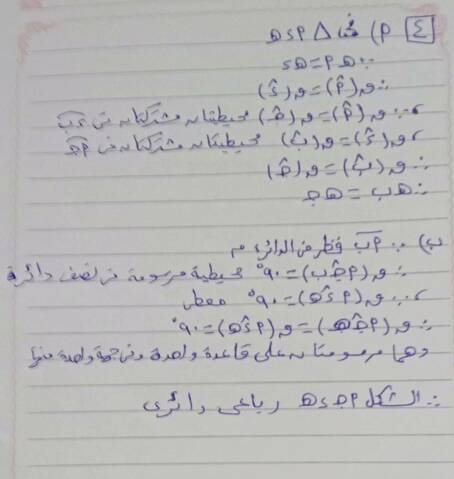 [٤] م) فى △ م د هـ
∵ هـ م = هـ د
∴ ق(م̂) = ق(د̂)
، ∵ ق(م̂) = ق(ج̂) محيطيتان مشتركتان فى
، ق(د̂) = ق(ب̂) محيطيتان مشتركتان فى
∴ ق(ب̂) = ق(ج̂)
∴ هـ ب = هـ ج
ب) ∵ م ب قطر فى الدائرة م
∴ ق(م ج̂ ب) = ٩٠° محيطية مرسومة فى نصف دائرة
، ∵ ق(م د̂ هـ) = ٩٠° معطى
∴ ق(م ج̂ هـ) = ق(م د̂ هـ) = ٩٠°
وهما مرسومتان على قاعدة واحدة وفى جهة واحدة منها
∴ الشكل م ج د هـ رباعى دائرى